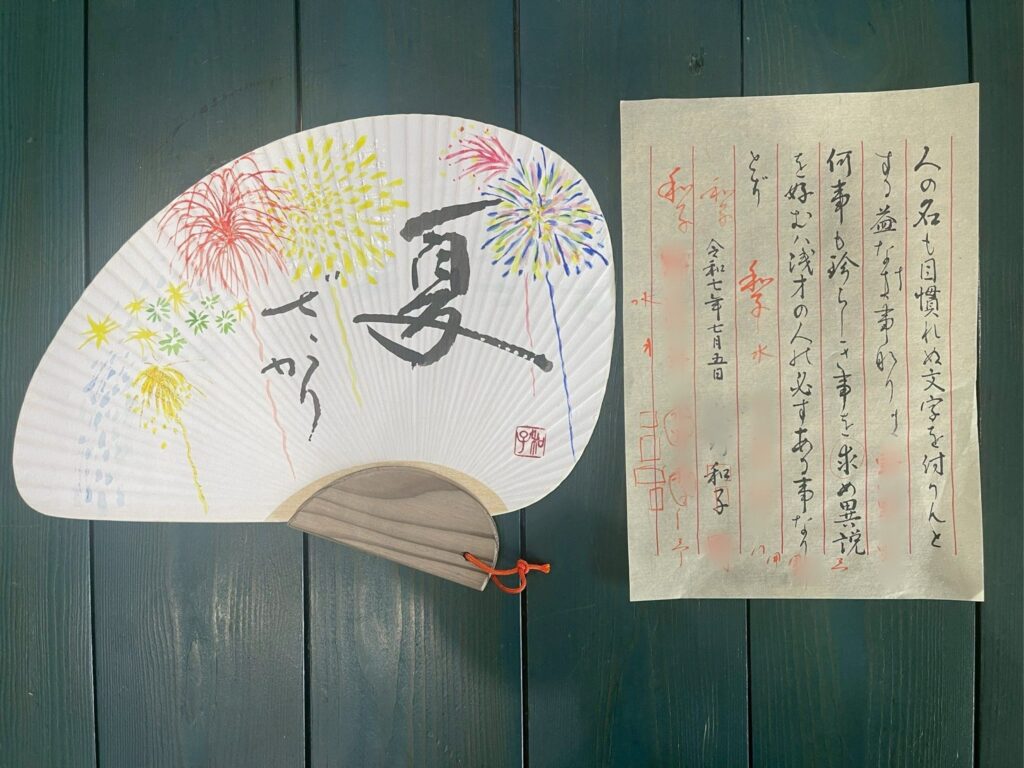 夏
ざかり
和子
人の名も目慣れぬ文字を付かんと
する益なき事なり
何事も珍らしき事を求め異説
を好むハ浅才の人の必すある事なり
とぞ
和子
水
令和七年七月五日
和子
和子
和子
水